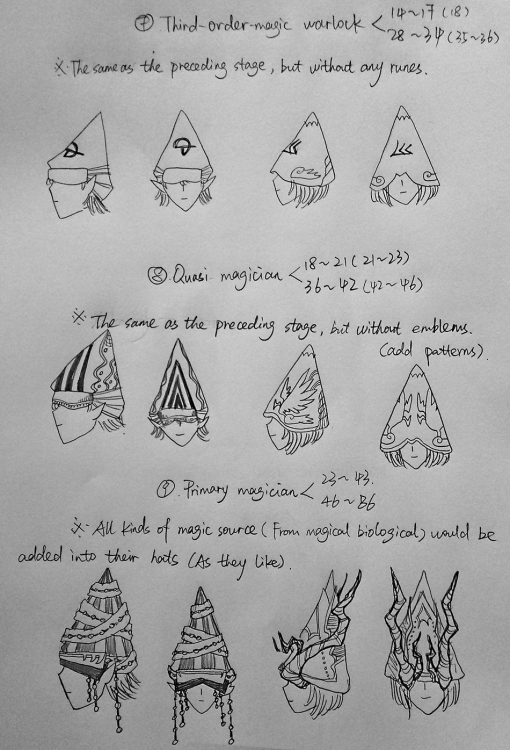 ⑦ Third-order-magic warlock < 14~17 (18)
28~34 (35~36)
※ The same as the preceding stage, but without any runes.
⑧ Quasi magician < 18~21 (21~23)
36~42 (42~46)
※ The same as the preceding stage, but without emblems.
(add patterns).
⑨ Primary magician < 23~43.
46~86
※ All kinds of magic source (From magical biological) would be
added into their hats (As they like).